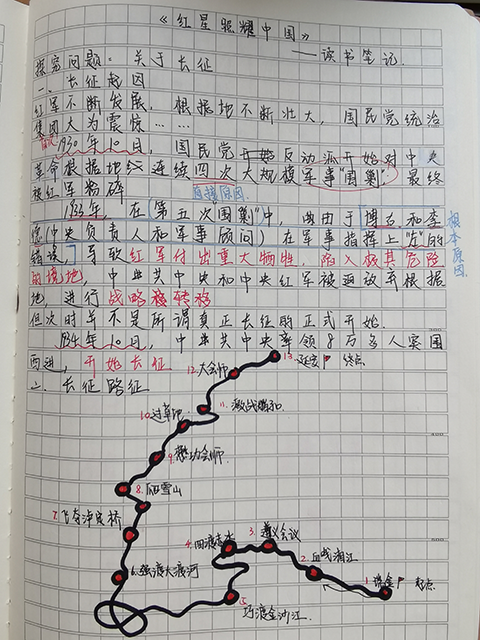 《红星照耀中国》
——读书笔记.
探究问题：关于长征
一、长征起因
红军不断发展，根据地不断壮大，国民党统治
集团大为震惊……
1930年10月，国民党开始反动派开始对中央
革命根据地 连续四次大规模军事"围剿"，最终
被红军粉碎
直接原因
1933年，在(第五次"围剿"中，由于博古和李
德(中央负责人和军事顾问)在军事指挥上"左"的
根本原因
错误，导致红军付出重大牺牲，陷入极其危险
的境地，中共中央和中央红军被迫放弃根据
地，进行战略转移
但次时 不是所谓真正长征的正式开始.
1934年10月，中共中央率领8万多人突围
西进，开始长征
二、长征路径
13.延安 终点
12.大会师
11.激战腊和.
10.过草地
9.懋功会师.
8.爬雪山
7.飞夺泸定桥
6.强渡大渡河
5.巧渡金沙江
4.四渡赤水
3.遵义会议
2.血战湘江
1.瑞金 起点